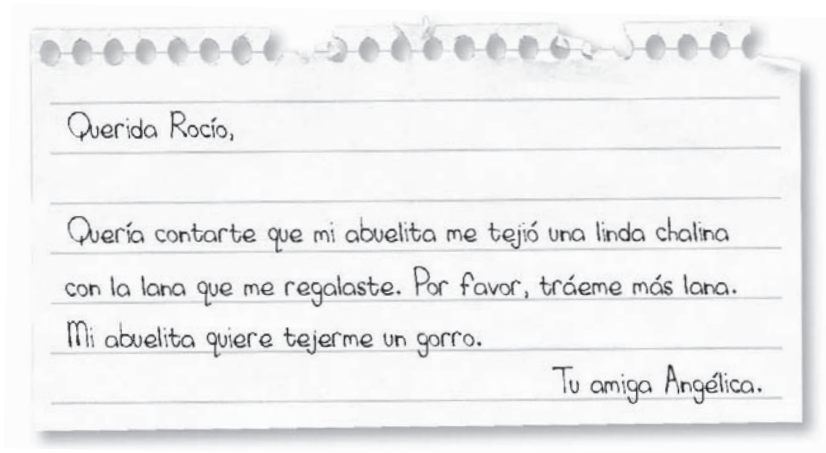 Querida Rocío,
Quería contarte que mi abuelita me tejió una linda chalina
con la lana que me regalaste. Por favor, tráeme más lana.
Mi abuelita quiere tejerme un gorro.
Tu amiga Angélica.